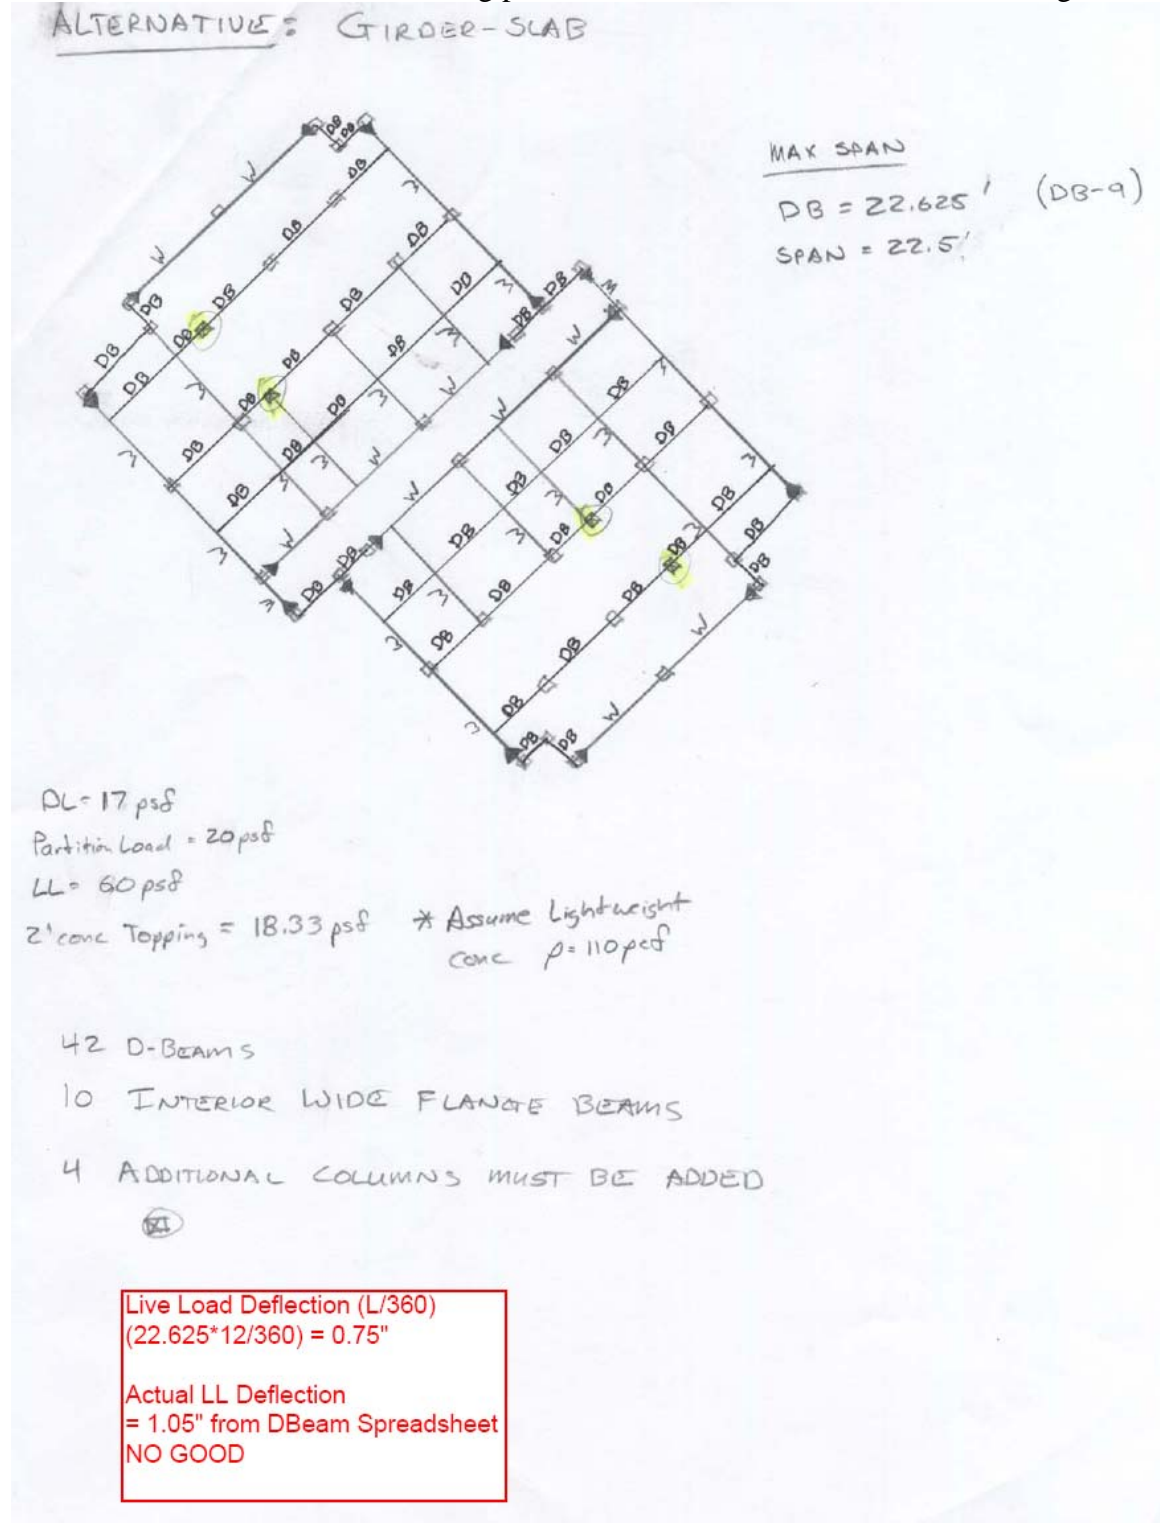 ALTERNATIVE: GIRDER-SLAB
MAX SPAN
DB = 22.625' (DB-9)
SPAN = 22.5'
DB
DB
DB
W
W
DB
DB
W
DB
DB
W
W
DB
DB
DB
DB
W
W
DB
DB
DB
DB
W
DB
DB
W
W
W
DB
DB
W
DB
W
DB
DB
W
DB
DB
W
W
W
W
DB
DB
W
DB
DB
W
DB
W
DB
DB
W
DB
DB
W
W
DB
DB
DB
DB
W
DB
DB
W
DB
W
DB
DB
W
W
DB
W
DB
DB
DL = 17 psf
Partition Load = 20 psf
LL = 60 psf
2" conc Topping = 18.33 psf * Assume Lightweight
conc ρ = 110 pcf
42 D-BEAMS
10 INTERIOR WIDE FLANGE BEAMS
4 ADDITIONAL COLUMNS MUST BE ADDED
Live Load Deflection (L/360)
(22.625*12/360) = 0.75"
Actual LL Deflection
= 1.05" from DBeam Spreadsheet
NO GOOD